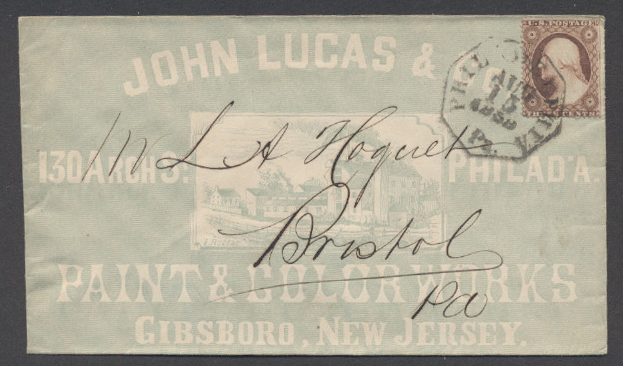 JOHN LUCAS & CO.
U.S. POSTAGE
THREE CENTS
PHILADELPHIA
AUG
15
1858
Pa
Mr L A Hoguet
130 ARCH ST. PHILAD'A.
Bristol
PAINT & COLOR WORKS
Pa
GIBSBORO, NEW JERSEY.